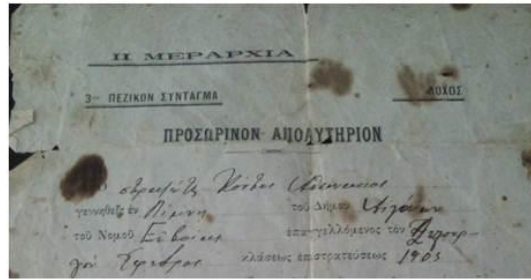 II ΜΕΡΑΡΧΙΑ
3ον ΠΕΖΙΚΟΝ ΣΥΝΤΑΓΜΑ ΛΟΧΟΣ
ΠΡΟΣΩΡΙΝΟΝ ΑΠΟΛΥΤΗΡΙΟΝ
στρατιώτης
γεννηθεὶς ἐν Λίμνῃ τοῦ Δήμου Αἰγαίων
τοῦ Νομοῦ Εὐβοίας ἐπαγγελλόμενος τὸν
κλάσεως ἐπιστρατεύσεως 1903